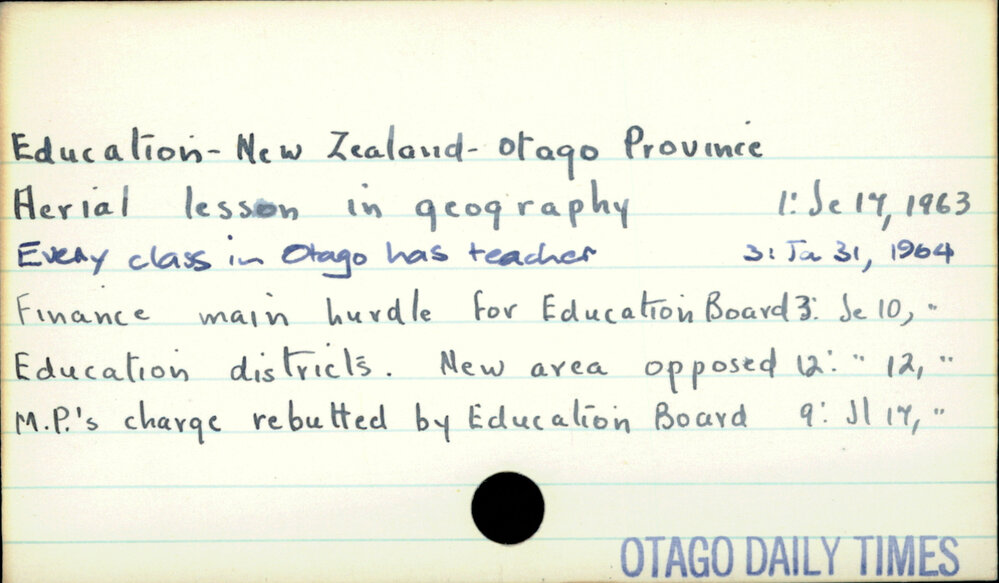 Education - New Zealand - Otago Province
Aerial lesson in geography 1: Se 17, 1963
Every class in Otago has teacher 3: Ja 31, 1964
Finance main hurdle for Education Board 3: Se 10, "
Education districts. New area opposed 12: " 12, "
M.P.'s charge rebutted by Education Board 9: Jl 17, "
OTAGO DAILY TIMES